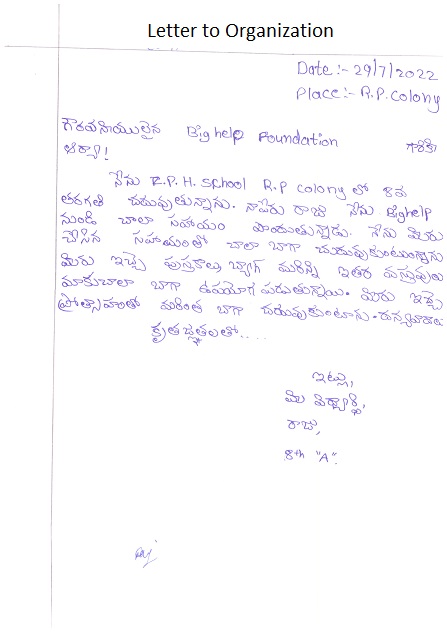 Letter to Organization
Date :- 29/7/2022
Place :- R.P. Colony
గౌరవనీయులైన Big help Foundation గారికి
ఆర్యా!
నేను Z.P.H. school R.P colony లో 8వ
తరగతి చదువుతున్నాను. నాపేరు రాజు నేను Bighelp
నుండి చాలా సహాయం పొందుతున్నాడు. నేను మీరు
చేసిన సహాయంతో చాలా బాగా చదువుకుంటున్నాను
మీరు ఇచ్చె పుస్తకాలు, బ్యాగ్ మరిన్ని ఇతర వస్తువులు
మాకుచాలా బాగా ఉపయోగ పడుతున్నాయి. మీరు ఇచ్చె
ప్రోత్సాహంతో మరింత బాగా చదువుకుంటాను. ధన్యవాదాలు
కృతజ్ఞతలతో.....
ఇట్లు,
మీ విద్యార్థి,
రాజు,
8th "A".